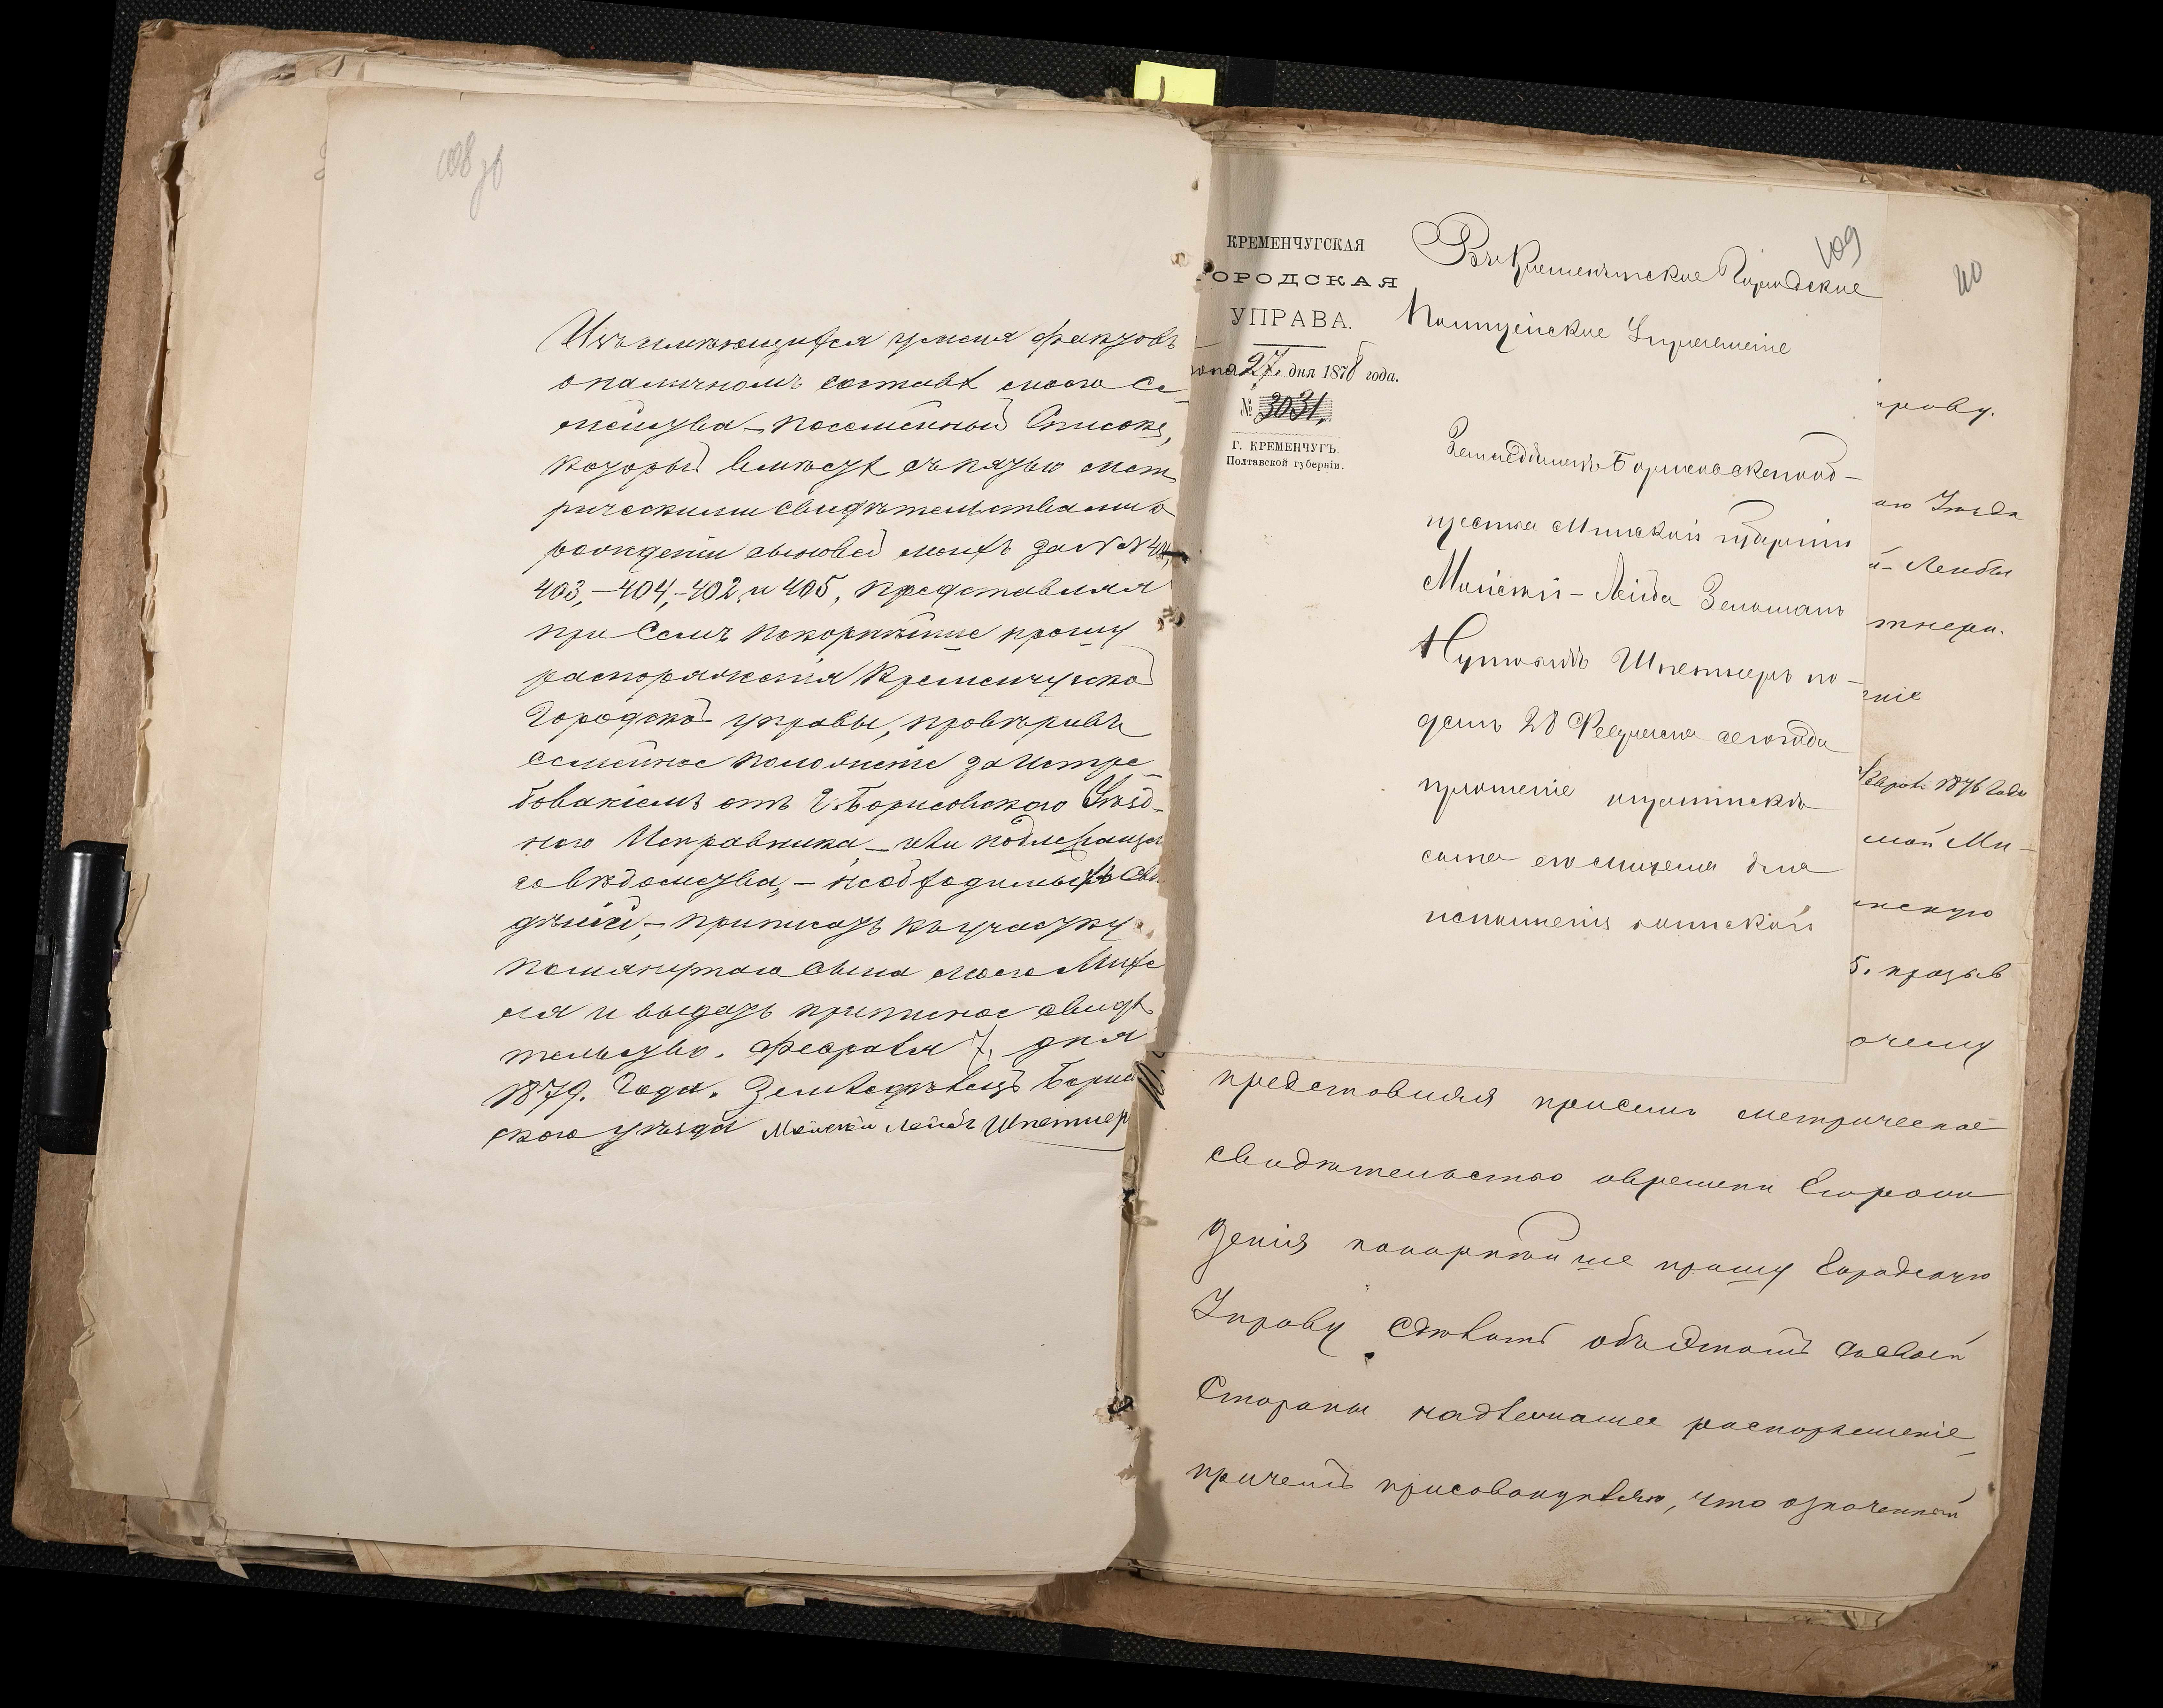 108 об
Изъ имѣющихся у меня фактовъ
о наличномъ составѣ моего Се-
мейства – посемейный Списокъ,
который вмѣстѣ съ пятью мет
рическими свидѣтельствами о
рожденіи сыновей моихъ за №№
403, – 404, – 402 и 405, представляя
при Семъ покорнѣйше прошу
распоряженія Кременчугской
Городской управы, провѣривъ
семейное положеніе за истре-
бованіемъ отъ Г. Борисовскаго Уѣзд-
наго Исправника, – или подлежащаго
вѣдомства, – необходимыхъ Свѣ
дѣній, – приписать къ участку
помянутаго сына моего Михе
ля и выдать приписное свидѣ
тельство. Февраля 7, дня
1879. Года. Земледѣлецъ Борисо
скаго уѣзда Мойсей Лейбъ Шпетнер
109
110
КРЕМЕНЧУГСКАЯ
ГОРОДСКАЯ
УПРАВА.
27, дня 1878 года.
№ 3031,
Г. КРЕМЕНЧУГЪ
Полтавской губерніи.
Въ Кременчугское Городское
Полицейское Управленіе
Земледѣлецъ Борисовскаго
Минской губерніи
Мойсей – Лейба Зельманъ
Шпетнеръ по-
далъ 28 Февраля сего года
прошеніе о припискѣ
сына его Михеля для
исполненія воинской
праву.
Уѣзда
й – Лейбы
тнера.
ніе
1876 Года
ской Ми-
нскую
5. призыв
очему
представляя присемъ метрическое
свидѣтельство овремени Егорож
денія покорнѣйше прошу Городскую
Управу сдѣлать объ этомъ со своей
Стороны надлежащее распоряженіе,
причемъ присовокупляю, что означенный